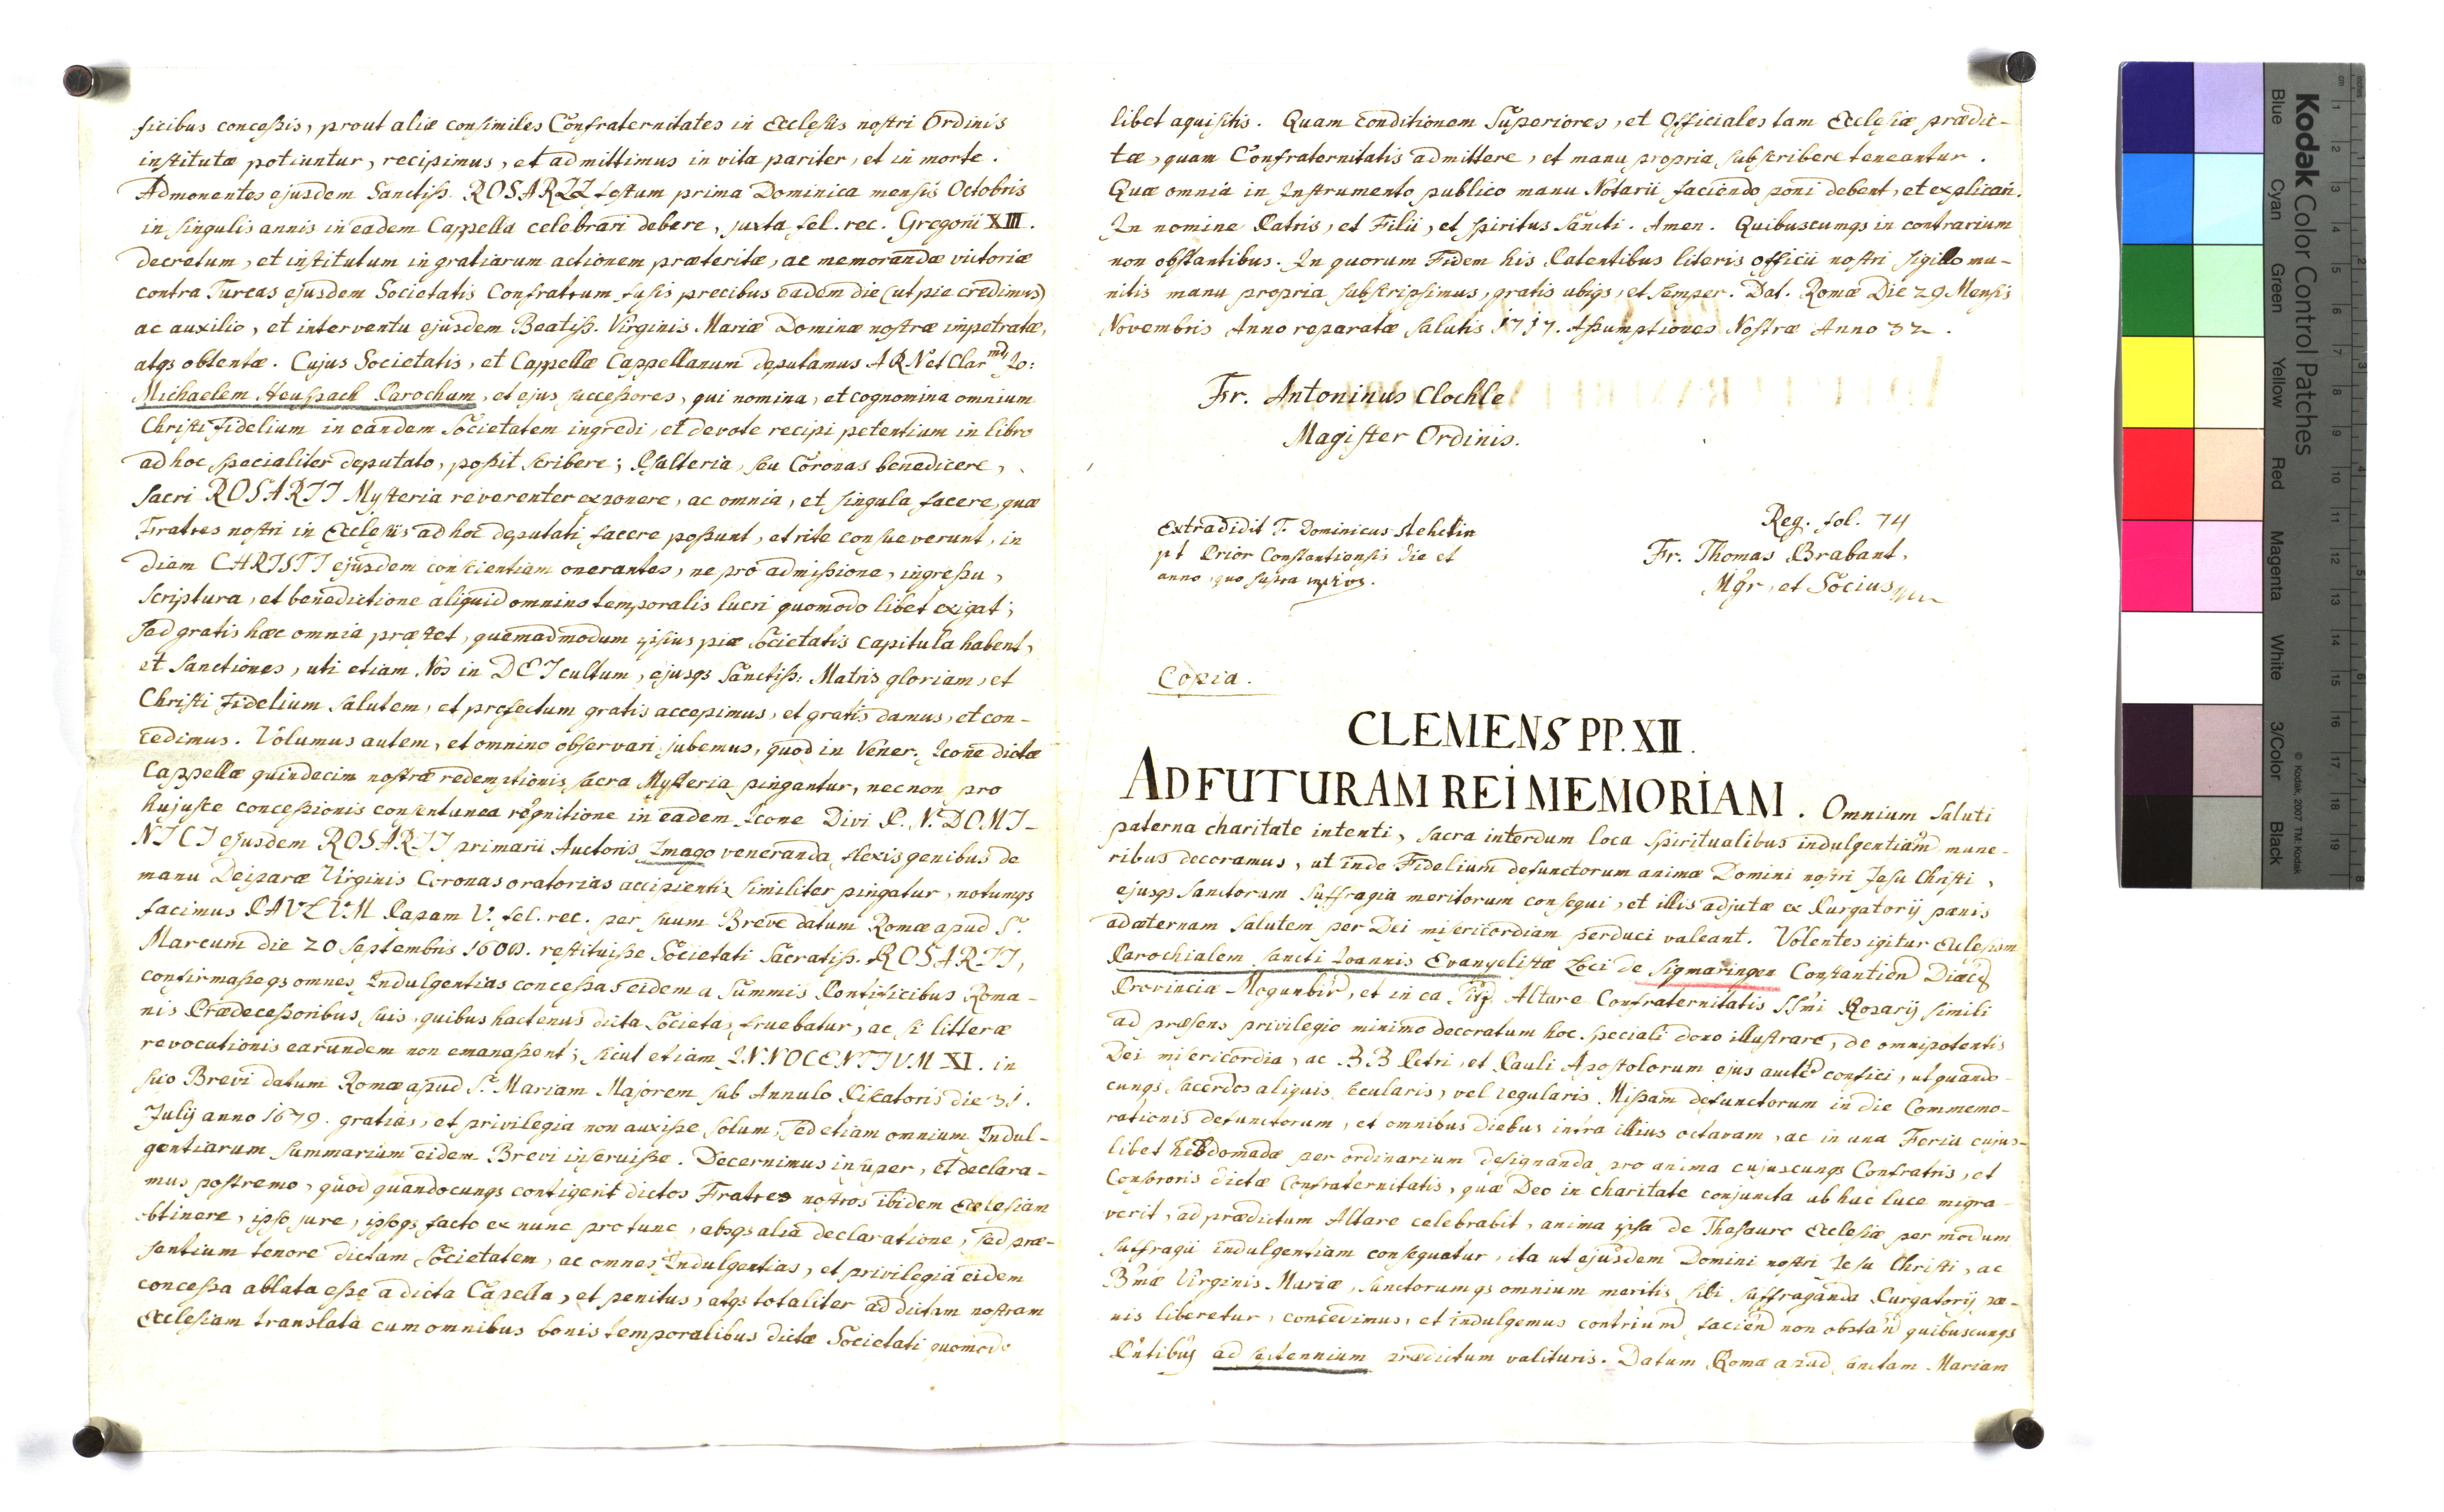 ficibus conceßis, prout aliæ consimiles Confraternitates in Ecclesiis nostri Ordinis
institutæ potiuntur, recipimus, et admittimus in vita pariter, et in morte.
Admonentes ejusdem Sanctiß. ROSARII festum prima Dominica mensis Octobris
in singulis annis in eadem Cappella celebrari debere, juxta fel. rec. Gregorii XIII.
decretum, et institutum in gratiarum actionem præteritæ, ac memorandæ victoriæ
contra Turcas ejusdem Societatis Confratrum fusis precibus eadem die (ut pie credimus)
ac auxilio, et interventu ejusdem Beatiß. Virginis Mariæ Dominæ nostræ impetratæ,
atqs obtentæ. Cujus Societatis, et Cappellæ Cappellanum deputamus A R N et Clar md Jo:
Michaelem Heuspach Parochum, et ejus succeßores, qui nomina, et cognomina omnium
Christi fidelium in eandem Societatem ingredi, et devote recipi petentium in libro
ad hoc specialiter deputato, poßit scribere; Psalteria, seu Coronas benedicere,
Sacri ROSARII Mysteria reverenter exponere, ac omnia, et singula facere, quæ
Fratres nostri in Ecclesiis ad hoc deputati facere poßunt, et rite consueverunt, in
diem CHRISTI ejusdem conscientiam onerantes, ne pro admißione, ingreßu,
scriptura, et benedictione aliquid omnino temporalis lucri quomodo libet exigat;
sed gratis hæc omnia præstet, quemadmodum ipsius piæ Societatis capitula habent,
et Sanctiones, uti etiam Nos in DEI cultum, ejusqs Sanctiß: Matris gloriam, et
Christi Fidelium salutem, et profectum gratis accepimus, et gratis damus, et con-
cedimus. Volumus autem, et omnino observari jubemus, quod in Vener: Icone dictæ
Cappellæ quindecim nostræ redemptionis sacra Mysteria pingantur, necnon pro
hujusce conceßionis consentanea cognitione in eadem Icone Divi P. N. DOMI-
NICI ejusdem ROSARII primarii Auctoris Imago veneranda flexis genibus de
manu Deiparæ Virginis Coronas oratorias accipientis similiter pingatur, notumqs
facimus PAULUM Papam V. fel. rec. per suum Breve datum Romæ apud S.
Marcum die 20 Septembris 1608. restituiße Societati Sacratiß. ROSARII,
confirmaßeqs omnes Indulgentias conceßas eidem a Summis Pontificibus Roma-
nis Prædeceßoribus suis, quibus hactenus dicta Societas fruebatur, ac si litteræ
revocationis earundem non emanaßent; sicut etiam INNOCENTIUM XI. in
suo Brevi datum Romæ apud S. Mariam Majorem sub Annulo Piscatoris die 31.
Julij anno 1679. gratias, et privilegia non auxiße solum, sed etiam omnium Indul-
gentiarum summarium eidem Brevi inseruiße. Decernimus insuper, et declara-
mus postremo, quod quandocunqs contigerit dictos Fratres nostros ibidem Ecclesiam
obtinere, ipso jure, ipsoqs facto ex nunc pro tunc, absqs alia declaratione, sed præ-
sentium tenore dictam Societatem, ac omnes Indulgentias, et privilegia eidem
conceßa ablata eße a dicta Capella, et penitus, atqs totaliter ad dictam nostram
Ecclesiam translata cum omnibus bonis temporalibus dictæ Societati quomodo
libet aquisitis. Quam Conditionem Superiores, et Officiales tam Ecclesiæ prædic-
tæ, quam Confraternitatis admittere, et manu propria subscribere teneantur.
Quæ omnia in Instrumento publico manu Notarii faciendo poni debent, et explicari.
In nomine Patris, et Filii, et Spiritus Sancti. Amen. Quibuscumqs in contrarium
non obstantibus. In quorum Fidem his Patentibus literis officii nostri sigillo mu-
nitis manu propria subscripsimus, gratis ubiqs, et semper. Dat. Romæ Die 29 Mensis
Novembris Anno reparatæ salutis 1717. Aßumptiones Nostræ Anno 32.
Fr. Antoninus Clochle
Magister Ordinis.
Extradidit F. Dominicus Stehelin
pt Prior Constantiensis die et
anno quo supra
Reg. fol. 74
Fr. Thomas Brabant,
Mgr, et Socius
Copia.
CLEMENS PP. XII.
AD FUTURAM REI MEMORIAM. Omnium Saluti
paterna charitate intenti, sacra interdum loca spiritualibus indulgentiam mune-
ribus decoramus, ut inde Fidelium defunctorum animæ Domini nostri Jesu Christi,
ejusqs Sanctorum suffragia meritorum consequi, et illis adjutæ ex Purgatorij pænis
ad æternam salutem per Dei misericordiam perduci valeant. Volentes igitur Ecclesiam
Parochialem Sancti Ioannis Evangelistæ Loci de Sigmaringen Constantien Diæc
Provincia Mogunbir, et in ea Altare Confraternitatis SSmi Rosarij simili
ad præsens privilegio minimo decoratum hoc speciali dono illustrare, de omnipotentis
Dei misericordia, ac BB Petri, et Pauli Apostolorum ejus aucte confici, ut quando-
cunqs sacerdos aliquis secularis, vel regularis Mißam defunctorum in die Commemo-
rationis defunctorum, et omnibus diebus infra illius octavam, ac in una Feria cujus-
libet hebdomadæ per ordinarium designanda pro anima cujuscunqs Confratris, et
Consororis dictæ Confraternitatis, quæ Deo in charitate conjuncta ab hac luce migra-
verit, ad prædictum Altare celebrabit, anima ipsa de Thesauro Ecclesiæ per modum
suffragii indulgentiam consequatur, ita ut ejusdem Domini nostri Jesu Christi, ac
Bmæ Virginis Mariæ, sanctorumqs omnium meritis sibi suffraganda Purgatorij pæ-
nis liberetur, concedimus, et indulgemus contrium facien non obstan quibuscunqs
Pntibus ad septennium prædictum valituris. Datum Romæ apud sanctam Mariam
Kodak Color Control Patches
Blue
Cyan
Green
Yellow
Red
Magenta
White
3/Color
Black
© Kodak, 2007 TM: Kodak
cm
inches
1
2
3
4
5
6
7
8
9
10
11
12
13
14
15
16
17
18
19
1
2
3
4
5
6
7
8